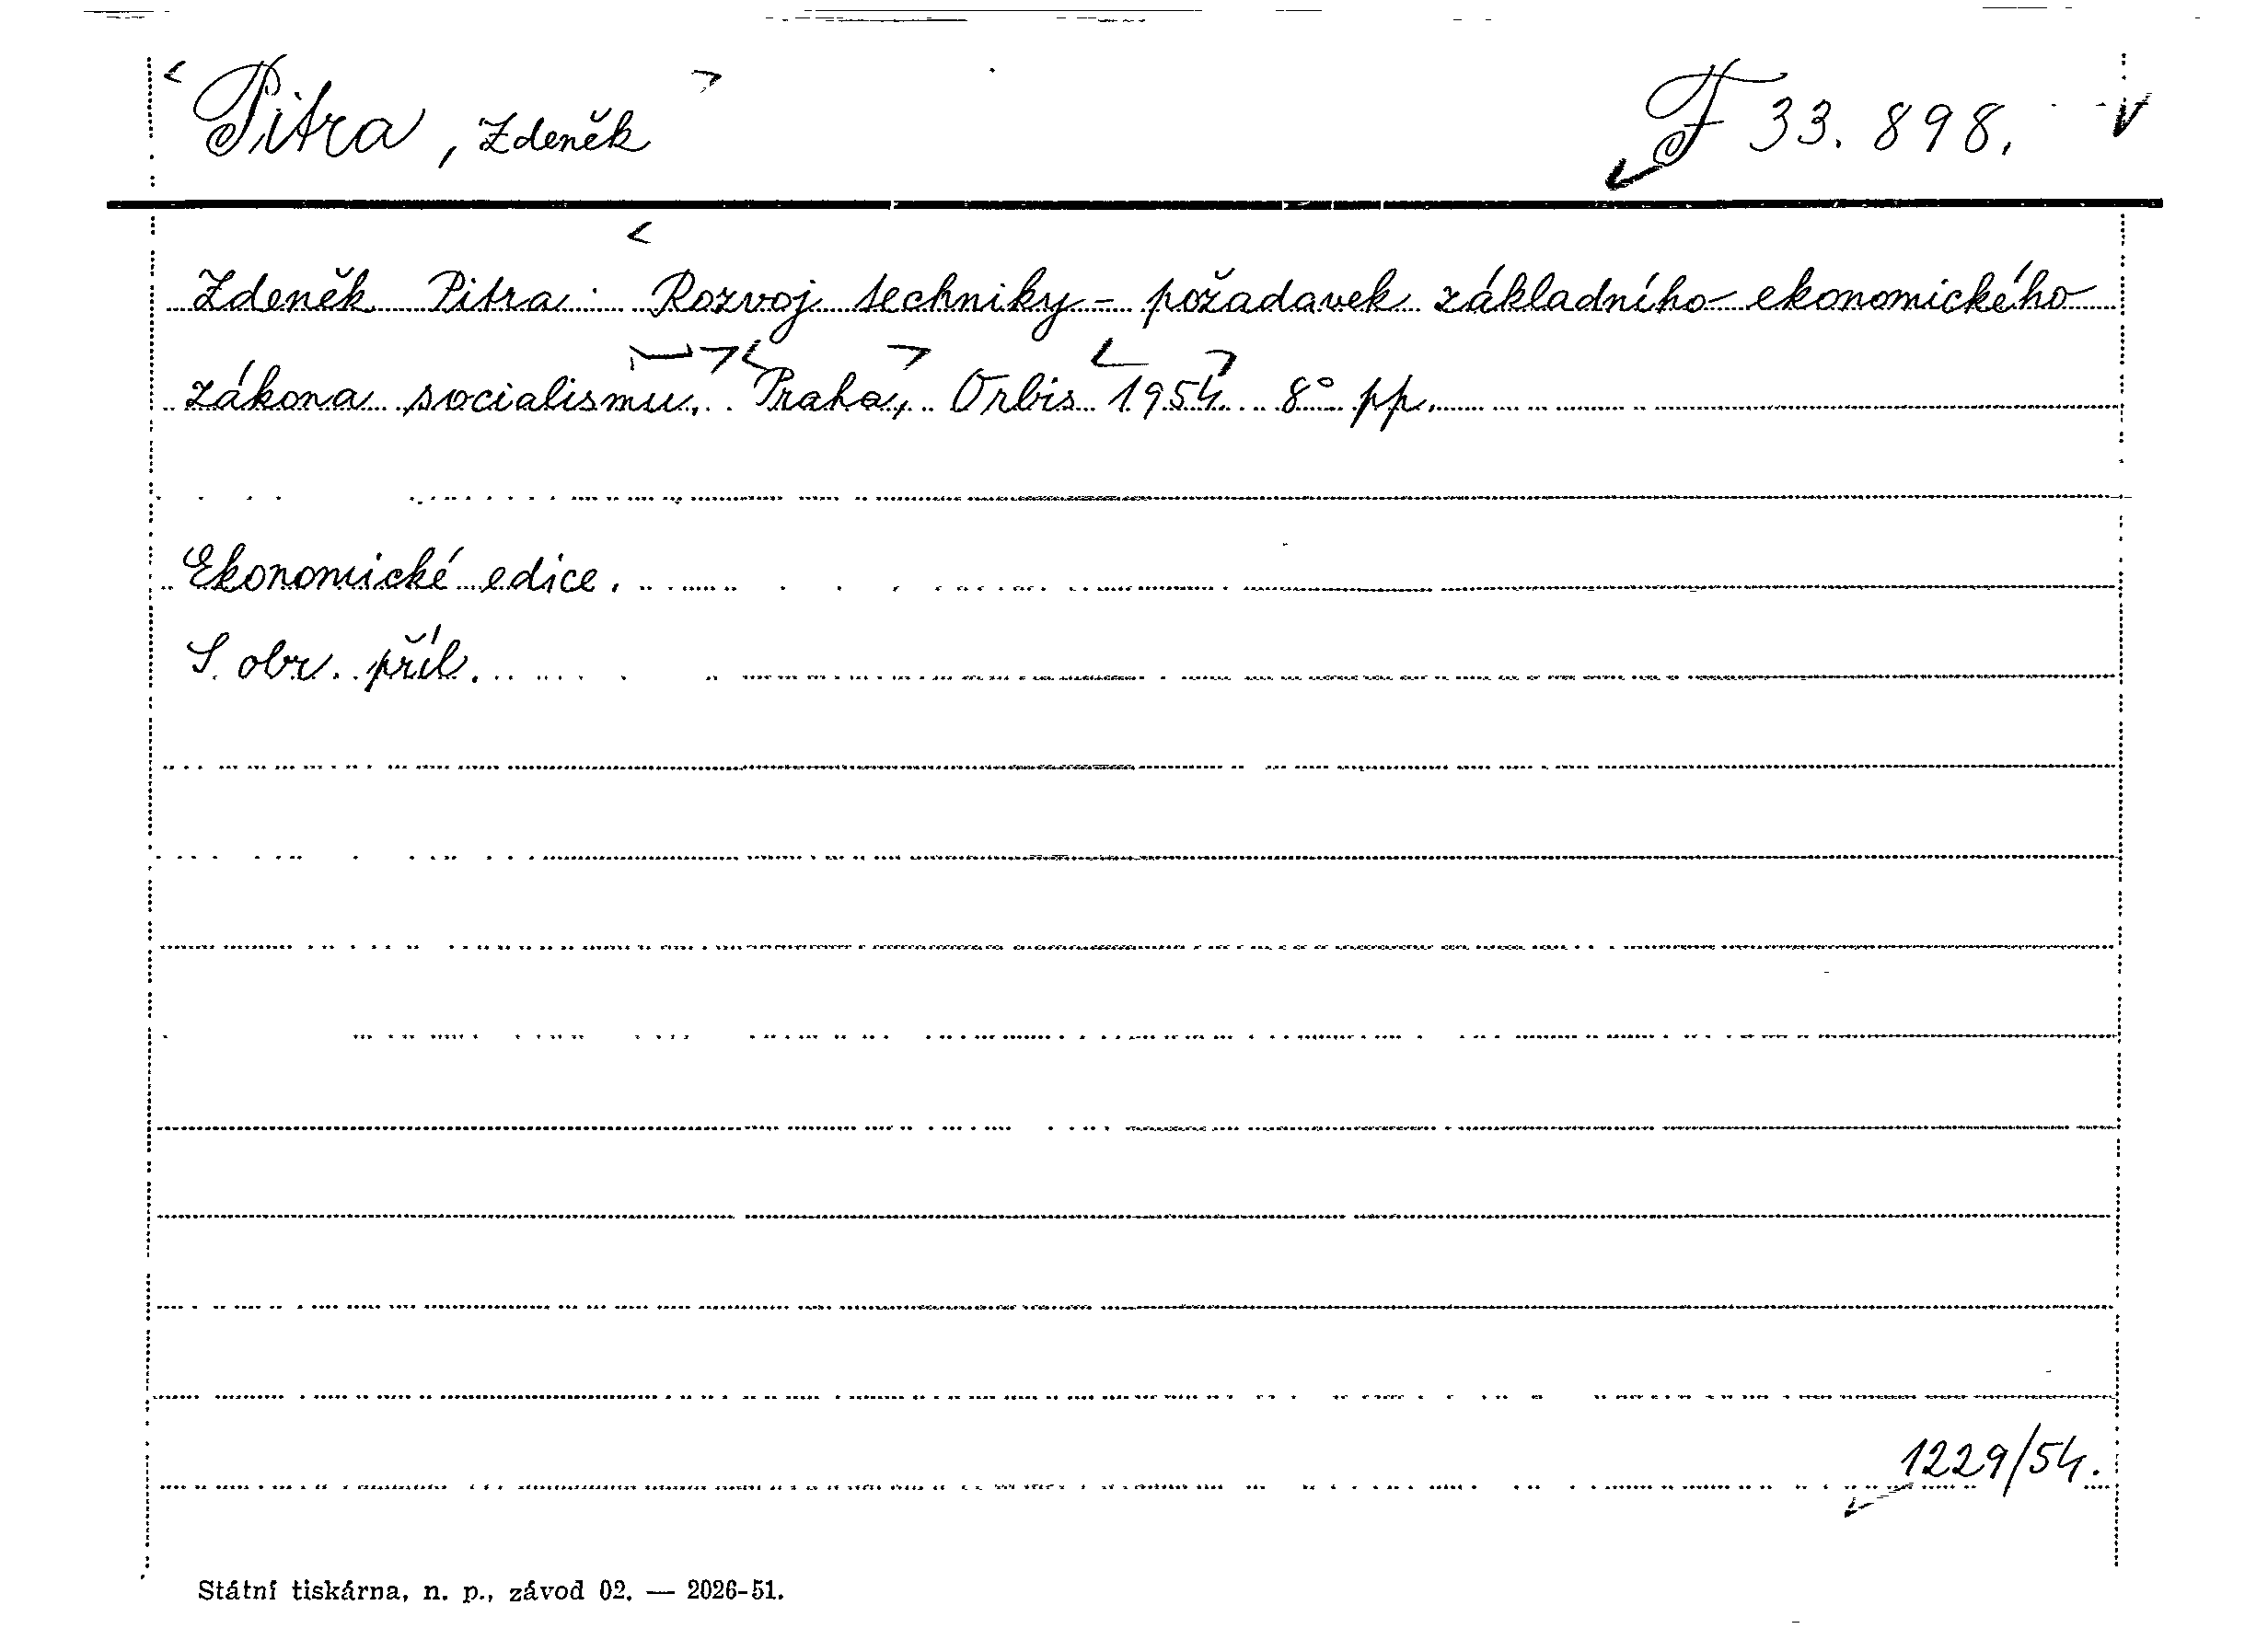 Pitra, Zdeněk F 33.898.
Zdeněk Pitra: Rozvoj techniky - požadavek základního ekonomického
zákona socialismu. Praha, Orbis 1954. 8° pp.
Ekonomické edice.
S obr. příl.
1229/54.
Státní tiskárna, n. p., závod 02. — 2026-51.